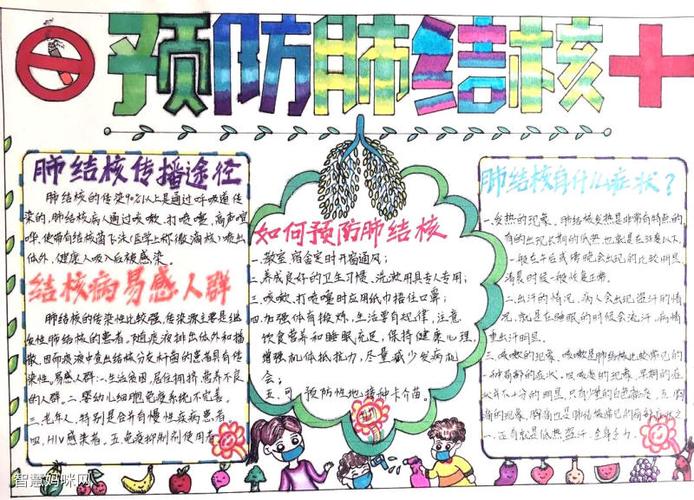 预防肺结核
肺结核传播途径
肺结核的传染90%以上是通过呼吸道传
染的,肺结核病人通过咳嗽、打喷嚏、高声喧
哗,使带有结核菌飞沫(医学上称微滴核)喷出
体外,健康人吸入后被感染。
结核病易感人群
肺结核的传染性比较强,传染源主要是继
发性肺结核的患者,随痰液排出体外和播
散,因而痰液中查出结核分枝杆菌的患者具有传
染性。易感人群:一.生活贫困,居住拥挤,营养不良
的人群。二.婴幼儿细胞免疫系统不完善。
三.老年人,特别是合并有慢性疾病患者
四.HIV感染者。五.免疫抑制剂使用者
如何预防肺结核
一.教室,宿舍定时开窗通风;
二.养成良好的卫生习惯、洗漱用具专人专用;
三.咳嗽、打喷嚏时应用纸巾捂住口鼻;
四.加强体育锻炼,生活要有规律,注意
饮食营养和睡眠充足,保持健康心理
增强机体抵抗力,尽量减少发病机
会;
五.可预防性地接种卡介苗。
肺结核有什么症状?
一.发热的现象。肺结核发热是非常有特点的
有的出现长期的低热,也就是在38度以下
一般在午后或傍晚会出现的比较明显
清晨时候一般恢复正常。
二.出汗的情况,病人会出现盗汗的情
况,就是在睡眠的时候会流汗,病情
重出汗明显。
三.咳嗽的现象,咳嗽是肺结核比较常见的
一种有的症状,以咳嗽的现象。早期的症
状并不十分的明显,只有少量的白色黏痰,
的现象,
智慧妈咪网